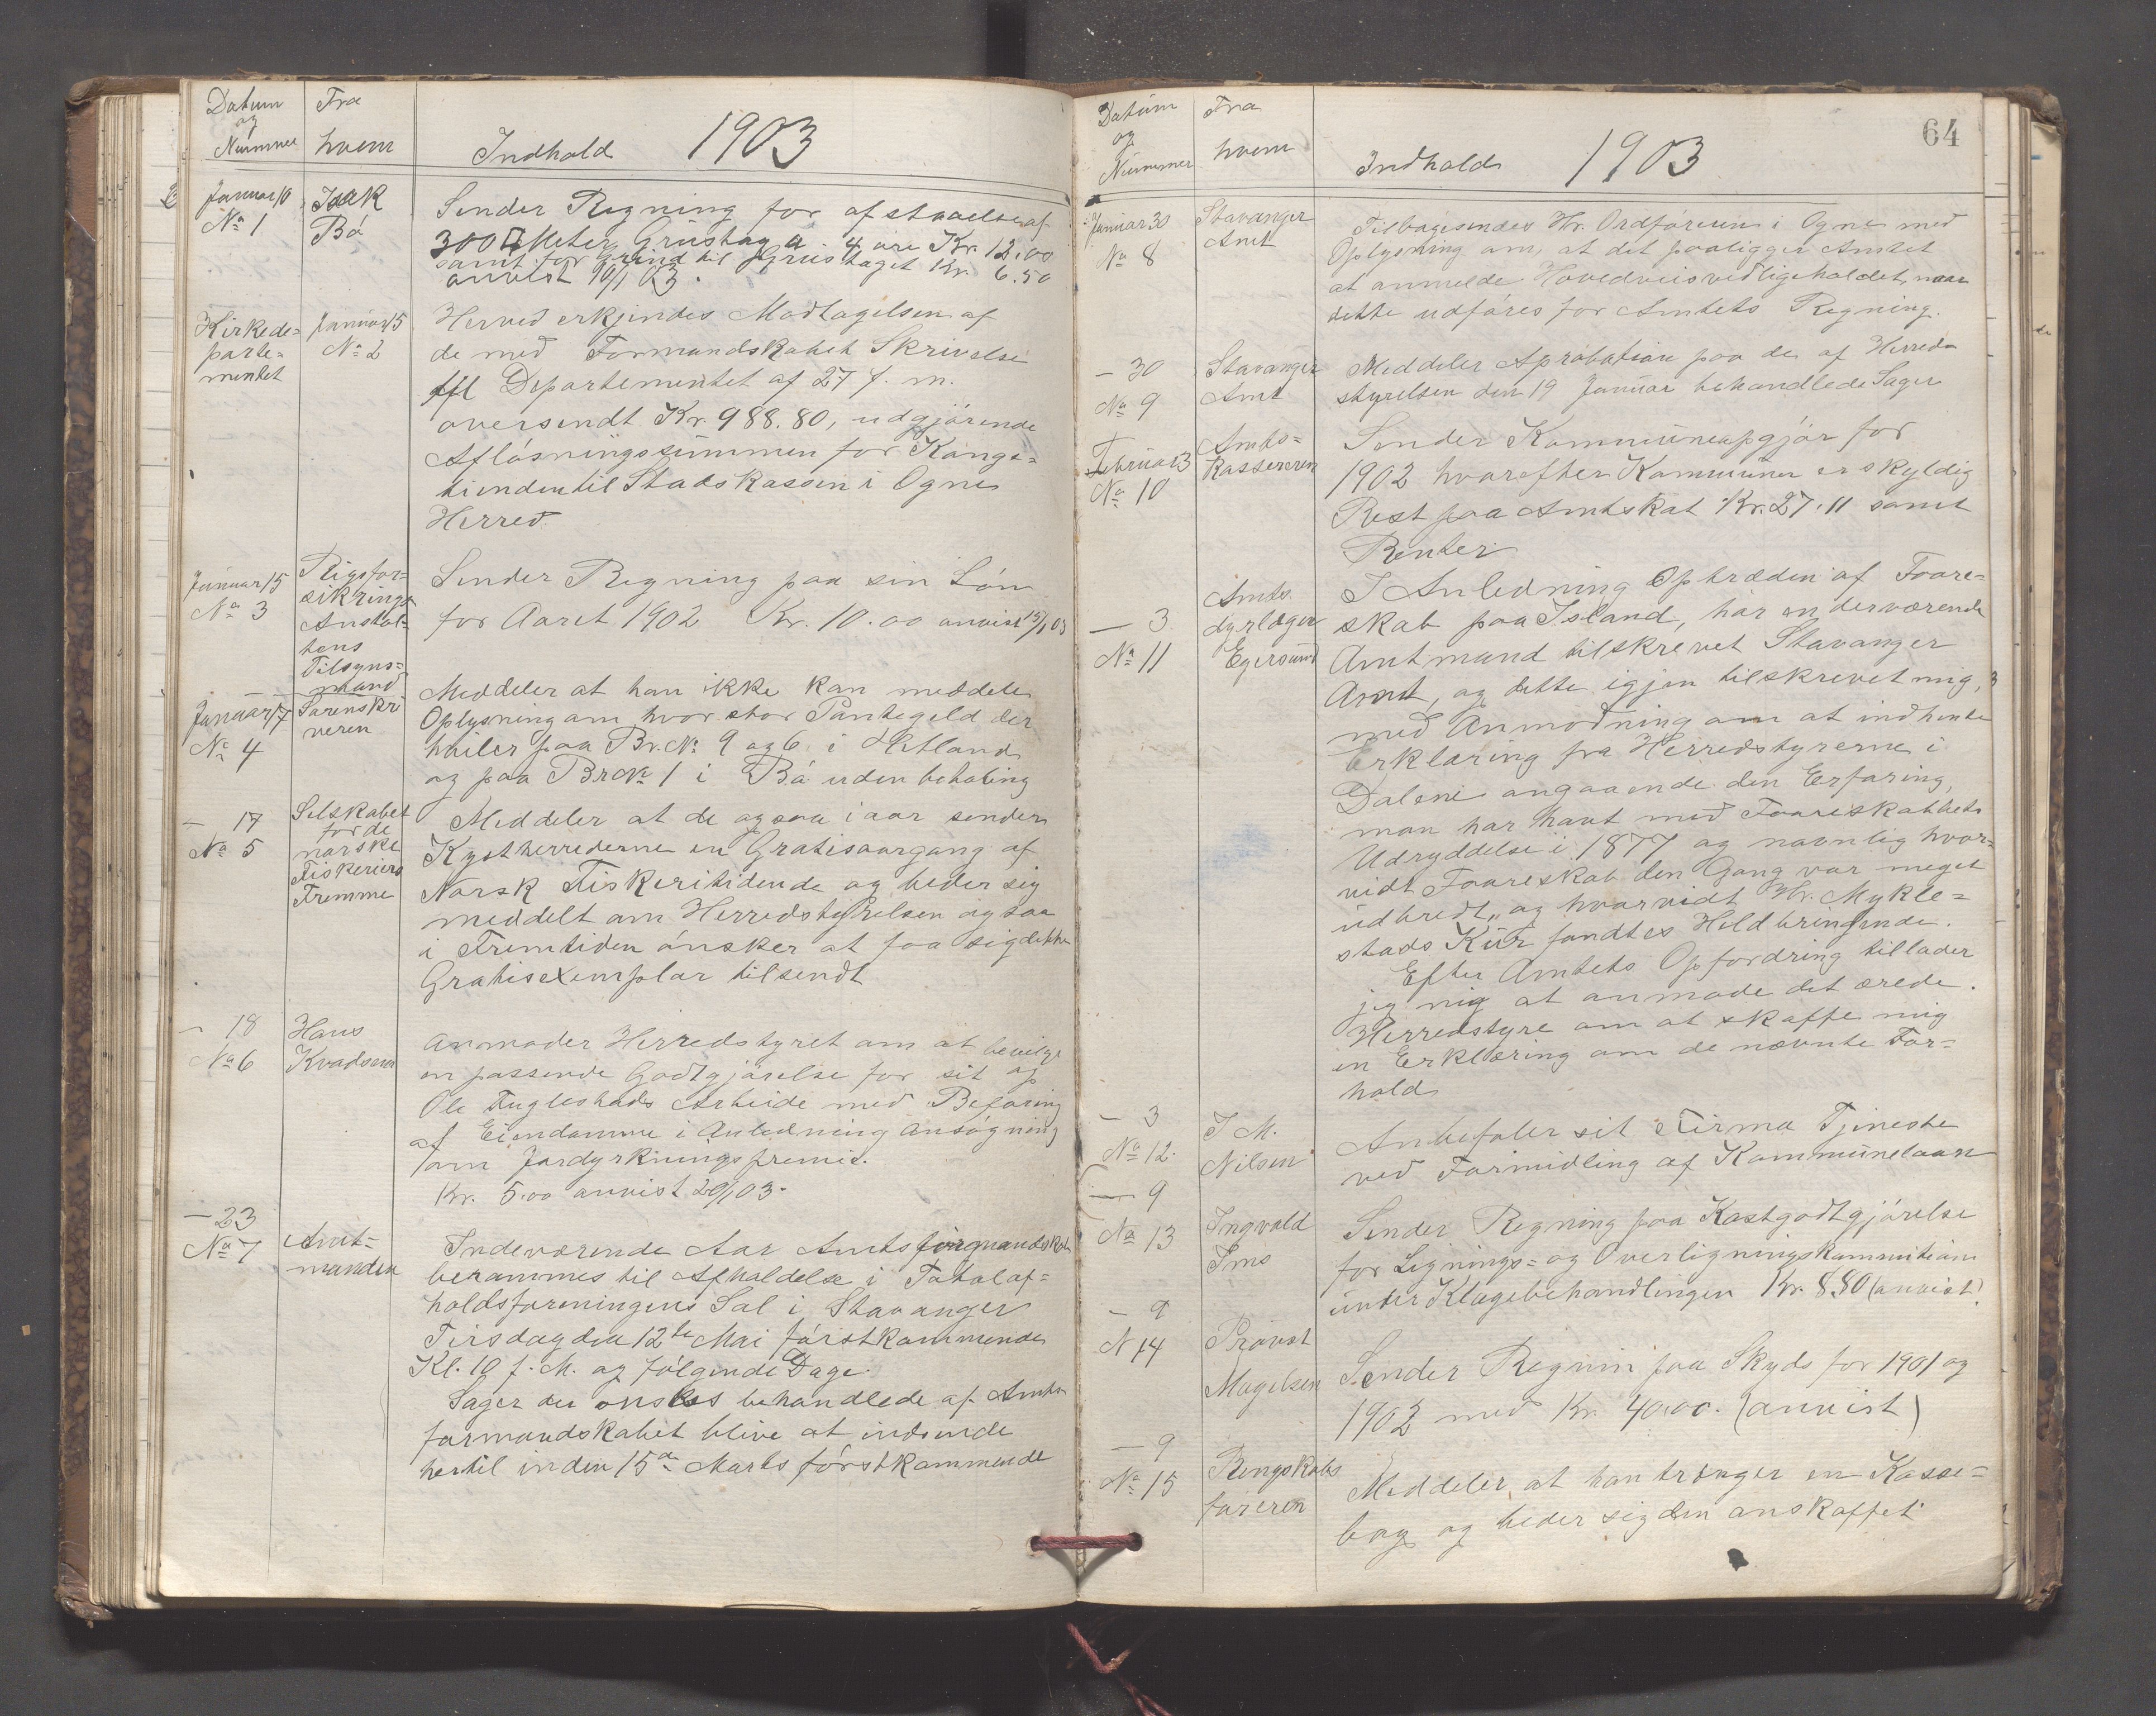 Datum
og
Nummer
Fra
hvem
Indhold 1903
Januar 10
No 1
Isak
Bø
Sender Regning for afstaaelse af
300 □ Meter Grustag a 4 øre Kr. 12.00
samt for Grind til Grustaget Kr. 6.50
anvist 10/1 03.
Kirkede=
parte=
mentet
Januar 15
No 2
Herved erkjendes Modtagelsen af
de med Formandskabets Skrivelse
til Departementet af 27 f. m.
oversendt Kr. 988.80, udgjørende
Afløsningssummen for Konge=
tienden til Stadskassen i Ogne
Herred.
Januar 15
No 3
Rigsfor=
sikrings
Anstal=
tens
Tilsyns=
mand
Sender Regning paa sin Løn
for Aaret 1902 Kr. 10.00 anvist 15/1 03
Januar 17
No 4
Sorenskri
veren
Meddeler at han ikke kan meddele
Oplysning om hvor stor Pantegjeld der
hviler paa Br. No 9 og 6 i Hetland
og paa Br No 1 i Bø uden betaling
— 17
No 5
Selskabet
for de
norske
Fiskeriers
Fremme
Meddeler at de ogsaa i aar sender
Kystherrederne en Gratisaargang af
Norsk Fiskeritidende og beder sig
meddelt om Herredstyrelsen ogsaa
i Fremtiden ønsker at faa sig dette
Gratisexemplar tilsendt
— 18
No 6
Hans
Kvadsem
Anmoder Herredstyret om at bevilge
en passende Godtgjørelse for sit og
Ole Fuglestads Arbeide med Befaring
af Eiendomme i Anledning Ansøgning
om Jordyrkningspremie.
Kr. 5.00 anvist 20/1 03.
— 23
No 7
Amt=
manden
Indeværende Aar Amtsformandskab
berammes til Afholdelse i Totalaf=
holdsforeningens Sal i Stavanger
Tirsdag den 12te Mai førstkommende
Kl. 10 f. M. og følgende Dage.
Sager der ønskes behandlede af Amts
formandskabet blive at indsende
hertil inden 15de Marts førstkommende
64
Datum
og
Nummer
Fra
hvem
Indhold 1903
Januar 30
No 8
Stavanger
Amt
Tilbagesendes Hr. Ordføreren i Ogne med
Oplysning om, at det paaligger Amtet
at anmelde Hovedveisvedligeholdet, naar
dette udføres for Amtets Regning.
— 30
No 9
Stavanger
Amt
Meddeler Aprobation paa de af Herreds
styrelsen den 19 Januar behandlede Sager
Februar 3
No 10
Amts=
kassereren
Sender Kommuneopgjør for
1902 hvorefter Kommunen er skyldig
Rest paa Amtskat Kr. 27.11 samt
Renter.
— 3
No 11
Amts
dyrlægen
Egersund
I Anledning Optræden af Faare=
skab paa Island, har en derværende
Amtmand tilskrevet Stavanger
Amt, og dette igjen tilskrevet mig,
med Anmodning om at indhente
Erklæring fra Herredstyrerne i
Dalene angaaende den Erfaring,
man har havt med Faareskabbets
Udryddelse i 1877 og navnlig hvor=
vidt Faareskab den Gang var meget
udbredt, og hvorvidt Hr. Mykle=
stads Kur fandtes Heldbringende.
Efter Amtets Opfordring tillader
jeg mig at anmode det ærede
Herredstyre om at skaffe mig
en Erklæring om de nævnte For=
hold
— 3
No 12.
J M.
Nilsen
Anbefaler sit Firma Tjeneste
ved Formidling af Kommunelaan
— 9
No 13
Ingvald
Ims
Sender Regning paa Kostgodtgjørelse
for Lignings= og Overligningskommition
under Klagebehandlingen Kr. 8.80 (anvist)
— 9
N 14
Provst
Magelsen
Sender Regnin paa Skyds for 1901 og
1902 med Kr. 40.00. (anvist)
— 9
No 15
Rengskabs
føreren
Meddeler at han trænger en Kasse=
bog og beder sig den anskaffet